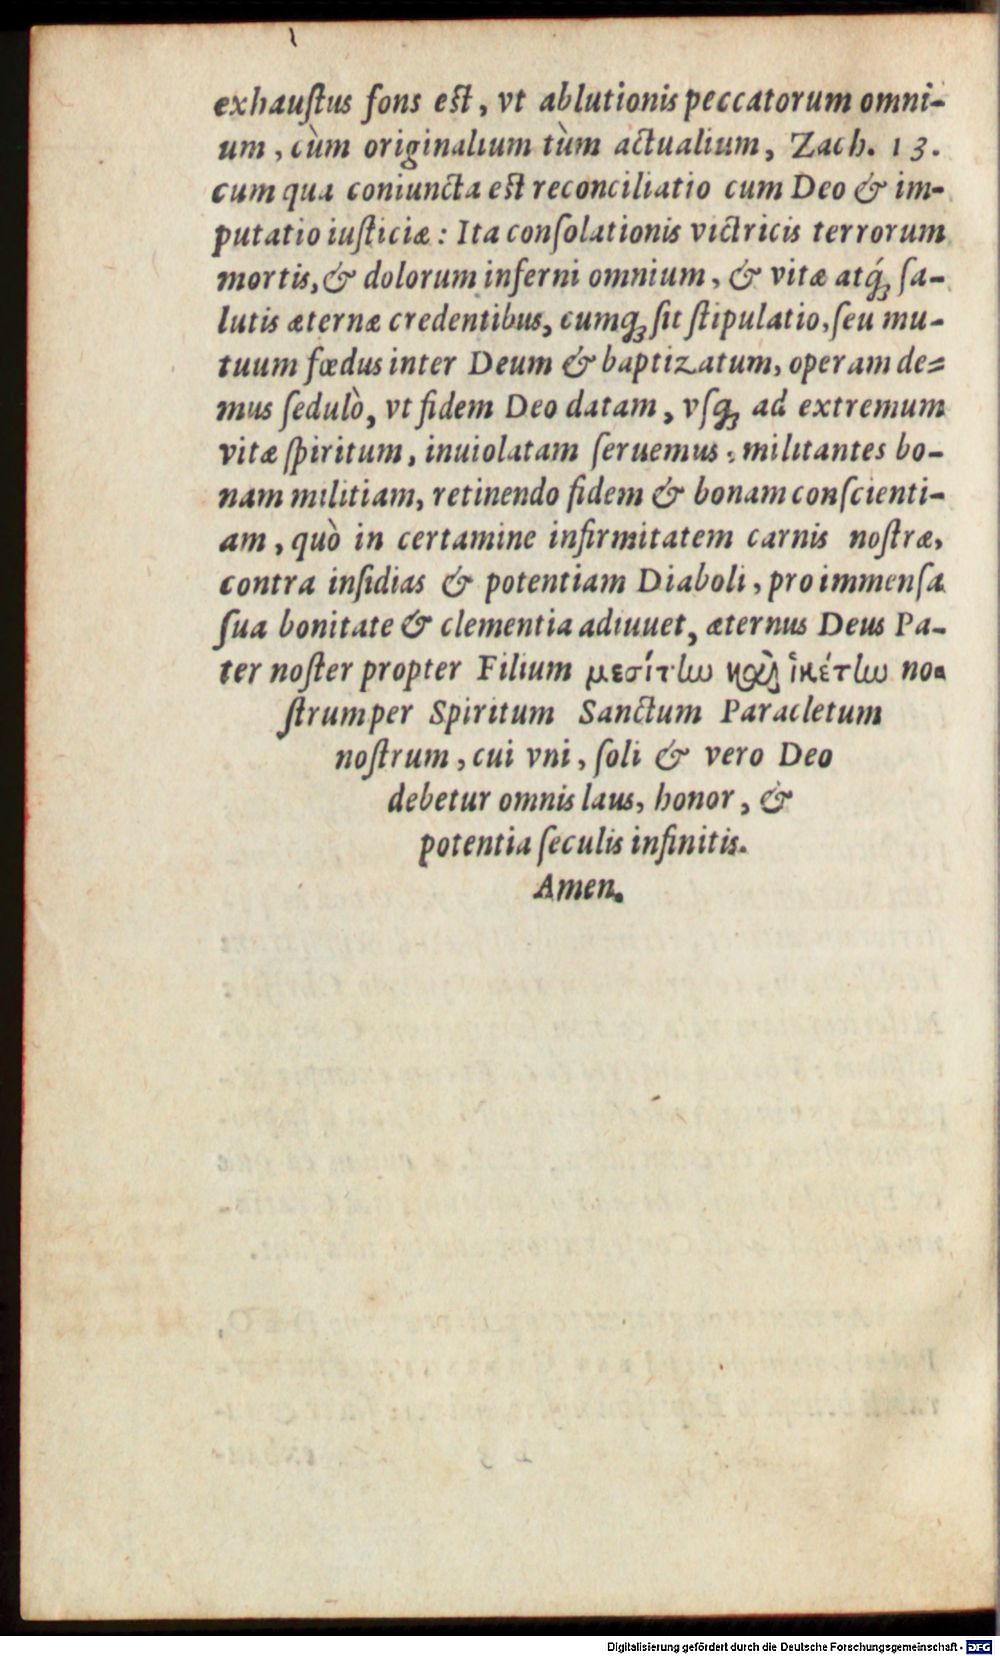 exhauſtus fons eſt, vt ablutionis peccatorum omni-
um, cùm originalium tùm actualium, Zach. 13.
cum qua coniuncta eſt reconciliatio cum Deo & im-
putatio iuſticiæ: Ita conſolationis victricis terrorum
mortis, & dolorum inferni omnium, & vitæ atq́ꝫ ſa-
lutis æternæ credentibus, cumqꝫ ſit ſtipulatio, ſeu mu-
tuum fœdus inter Deum & baptizatum, operam de=
mus ſedulò, vt fidem Deo datam, vſqꝫ ad extremum
vitæ ſpiritum, inuiolatam ſeruemus: militantes bo-
nam militiam, retinendo fidem & bonam conſcienti-
am, quò in certamine infirmitatem carnis noſtræ,
contra inſidias & potentiam Diaboli, pro immenſa
ſua bonitate & clementia adiuuet, æternus Deus Pa-
ter noſter propter Filium μεσίτω καὶ ἱκέτω no-
ſtrum per Spiritum Sanctum Paracletum
noſtrum, cui vni, ſoli & vero Deo
debetur omnis laus, honor, &
potentia ſeculis infinitis.
Amen.
Digitalisierung gefördert durch die Deutsche Forschungsgemeinschaft - DFG